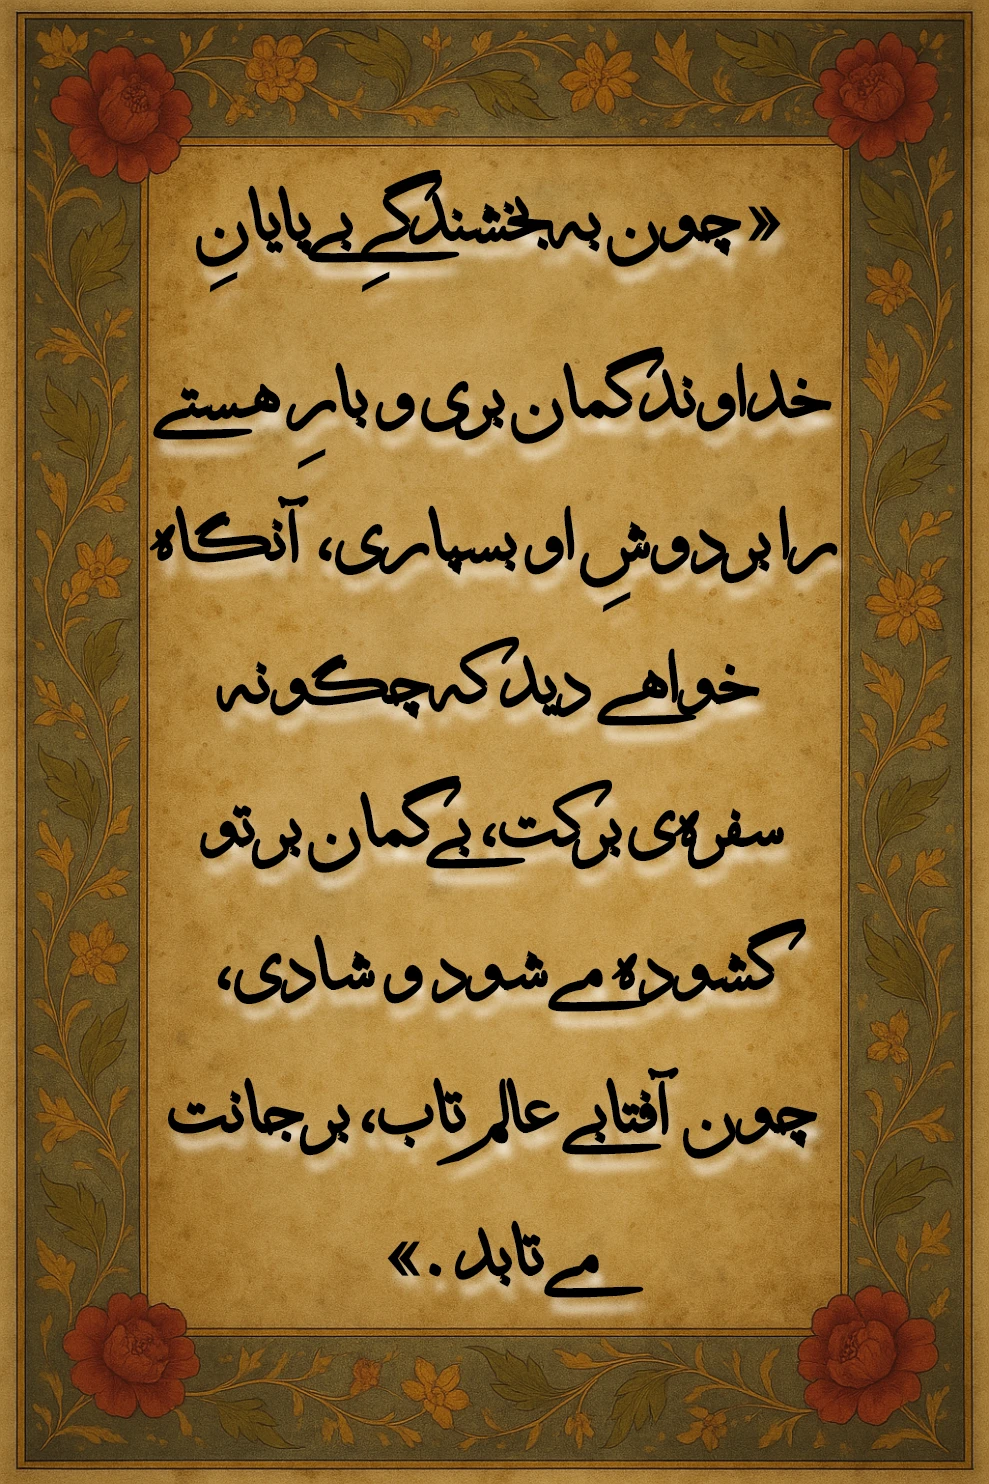 «چون به بخشندگیِ بی‌پایانِ
خداوند گمان بری و بارِ هستی
را بر دوشِ او بسپاری، آنگاه
خواهی دید که چگونه
سفره‌ی برکت، بی‌گمان بر تو
گشوده می‌شود و شادی،
چون آفتابی عالم‌تاب، بر جانت
می‌تابد.»